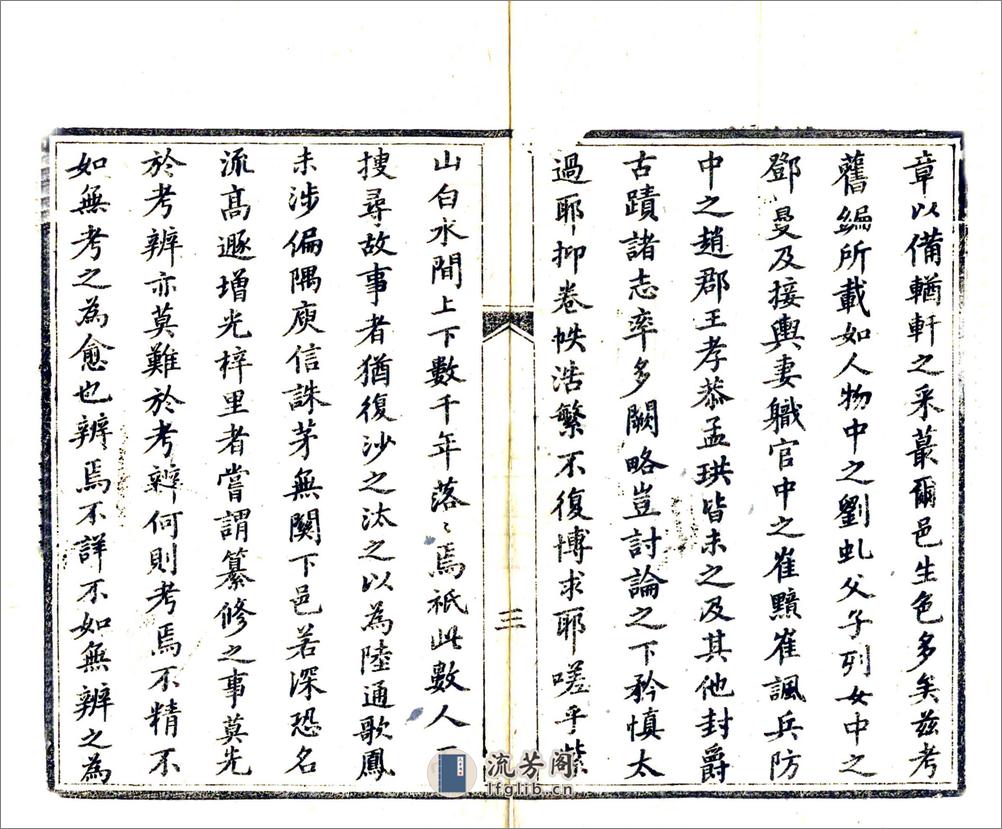 章以備輶軒之采蕞爾邑生色多矣茲考
舊編所載如人物中之劉虬父子列女中之
鄧曼及接輿妻職官中之崔黯崔諷兵防
中之趙郡王孝恭孟珙皆未之及其他封爵
古蹟諸志率多闕略豈討論之下矜慎太
過耶抑卷帙浩繁不復博求耶嗟乎紫
三
山白水間上下數千年落〻焉祇此數人而
搜尋故事者猶復沙之汰之以為陸通歌鳳
未涉偏隅庾信誅茅無關下邑若深恐名
流高遯增光梓里者嘗謂纂修之事莫先
於考辨亦莫難於考辨何則考焉不精不
如無考之為愈也辨焉不詳不如無辨之為
流芳阁
lfglib.cn